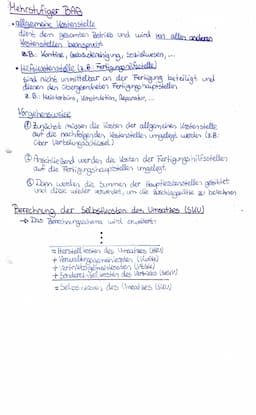 Mehrstufiger BAB
• allgemeine Kostenstelle
dient dem gesamten Betrieb und wird von allen anderen
Kostenstellen beansprucht
z.B.: Kantine, Gebäudereinigung, Sozialwesen, ...
• Hilfskostenstelle (z.B. Fertigungshilfsstelle)
sind nicht unmittelbar an der Fertigung beteiligt und
dienen den übergeordneten Fertigungshauptstellen
z.B.: Meisterbüro, Konstruktion, Reparatur, ...
Vorgehensweise
① Zunächst müssen die Kosten der allgemeinen Kostenstelle
auf die nachfolgenden Kostenstellen umgelegt werden (z.B.:
über Verteilungsschlüssel)
② Anschließend werden die Kosten der Fertigungshilfsstellen
auf die Fertigungshauptstellen umgelegt
③ Dann werden die Summen der Hauptkostenstellen gebildet
und diese wieder verwendet, um die Zuschlagsätze zu berechnen
Berechnung der Selbstkosten des Umsatzes (SKU)
→ Das Berechnungsschema wird erweitert:
⋮
= Herstellkosten des Umsatzes (HKU)
+ Verwaltungsgemeinkosten (VwGK)
+ Vertriebsgemeinkosten (VtGK)
+ Sondereinzelkosten des Vertriebs (SEKVt)
= Selbstkosten des Umsatzes (SKU)